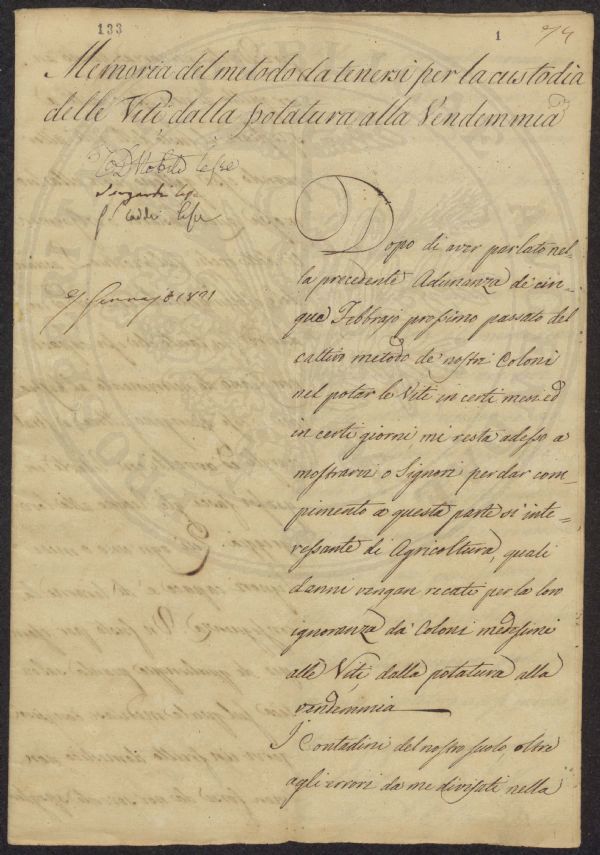 133
1
74
Memoria del metodo da tenersi per la custodia
delle Viti dalla potatura alla Vendemmia
lesse
lesse
lesse
Gennajo 1821
Dopo di aver parlato nel-
la precedente Adunanza de' cin-
que Febbrajo prossimo passato del
cattivo metodo de' nostri Coloni
nel potar le Viti in certi mesi ed
in certi giorni mi resta adesso a
mostrarvi o Signori per dar com-
pimento a questa parte sì inte-
ressante di Agricoltura, quali
danni vengan recati per la loro
ignoranza da' Coloni medesimi
alle Viti dalla potatura alla
vendemmia
I Contadini del nostro suolo oltre
agli errori da me divisati nella